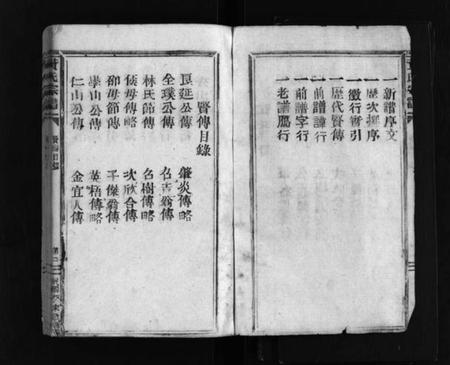 一新譜序文
一歷次撰序
一徵行實引
一歷代賢傳
一前譜諱行
一前譜字行
一老譜屬行
賢傳目錄
良延公傳
肇炎傳略
全璞公傳
名吉翁傳
林氏節傳
名樹傳略
侯母傳略
次欣合傳
邵母節傳
子傑翁傳
學山公傳
英梧傳略
仁山公傳
金宜人傳